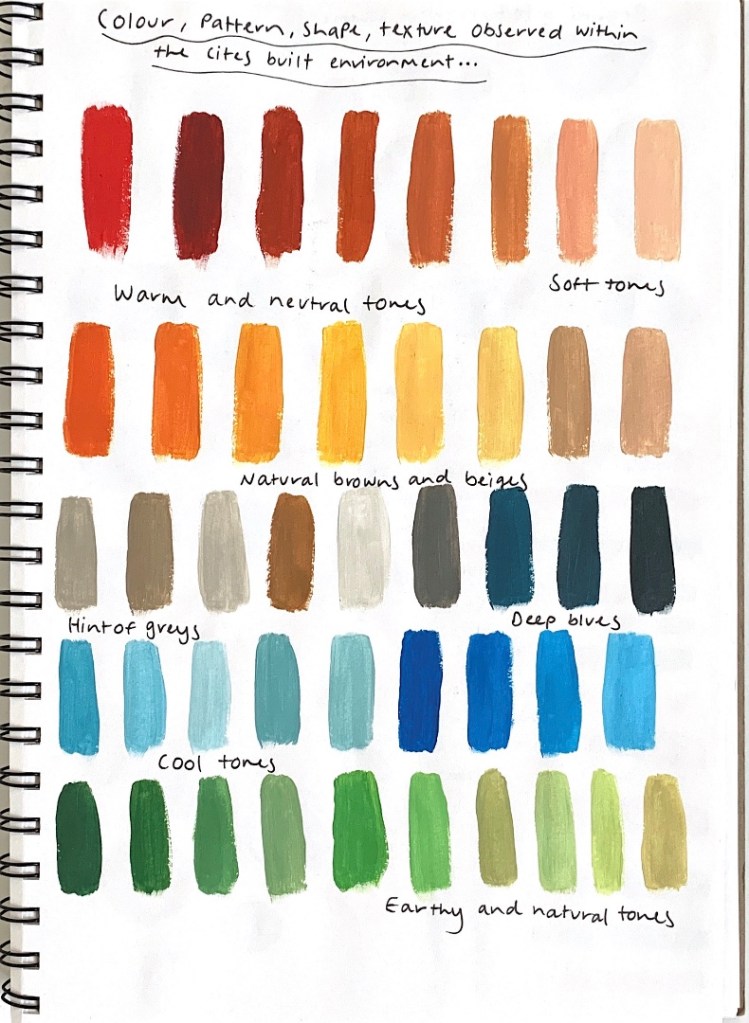 Colour, Pattern, Shape, texture observed within
the cites built environment...
Soft tones
Warm and neutral tones
Natural browns and beiges
Hint of greys
Deep blues
Cool tones
Earthy and natural tones